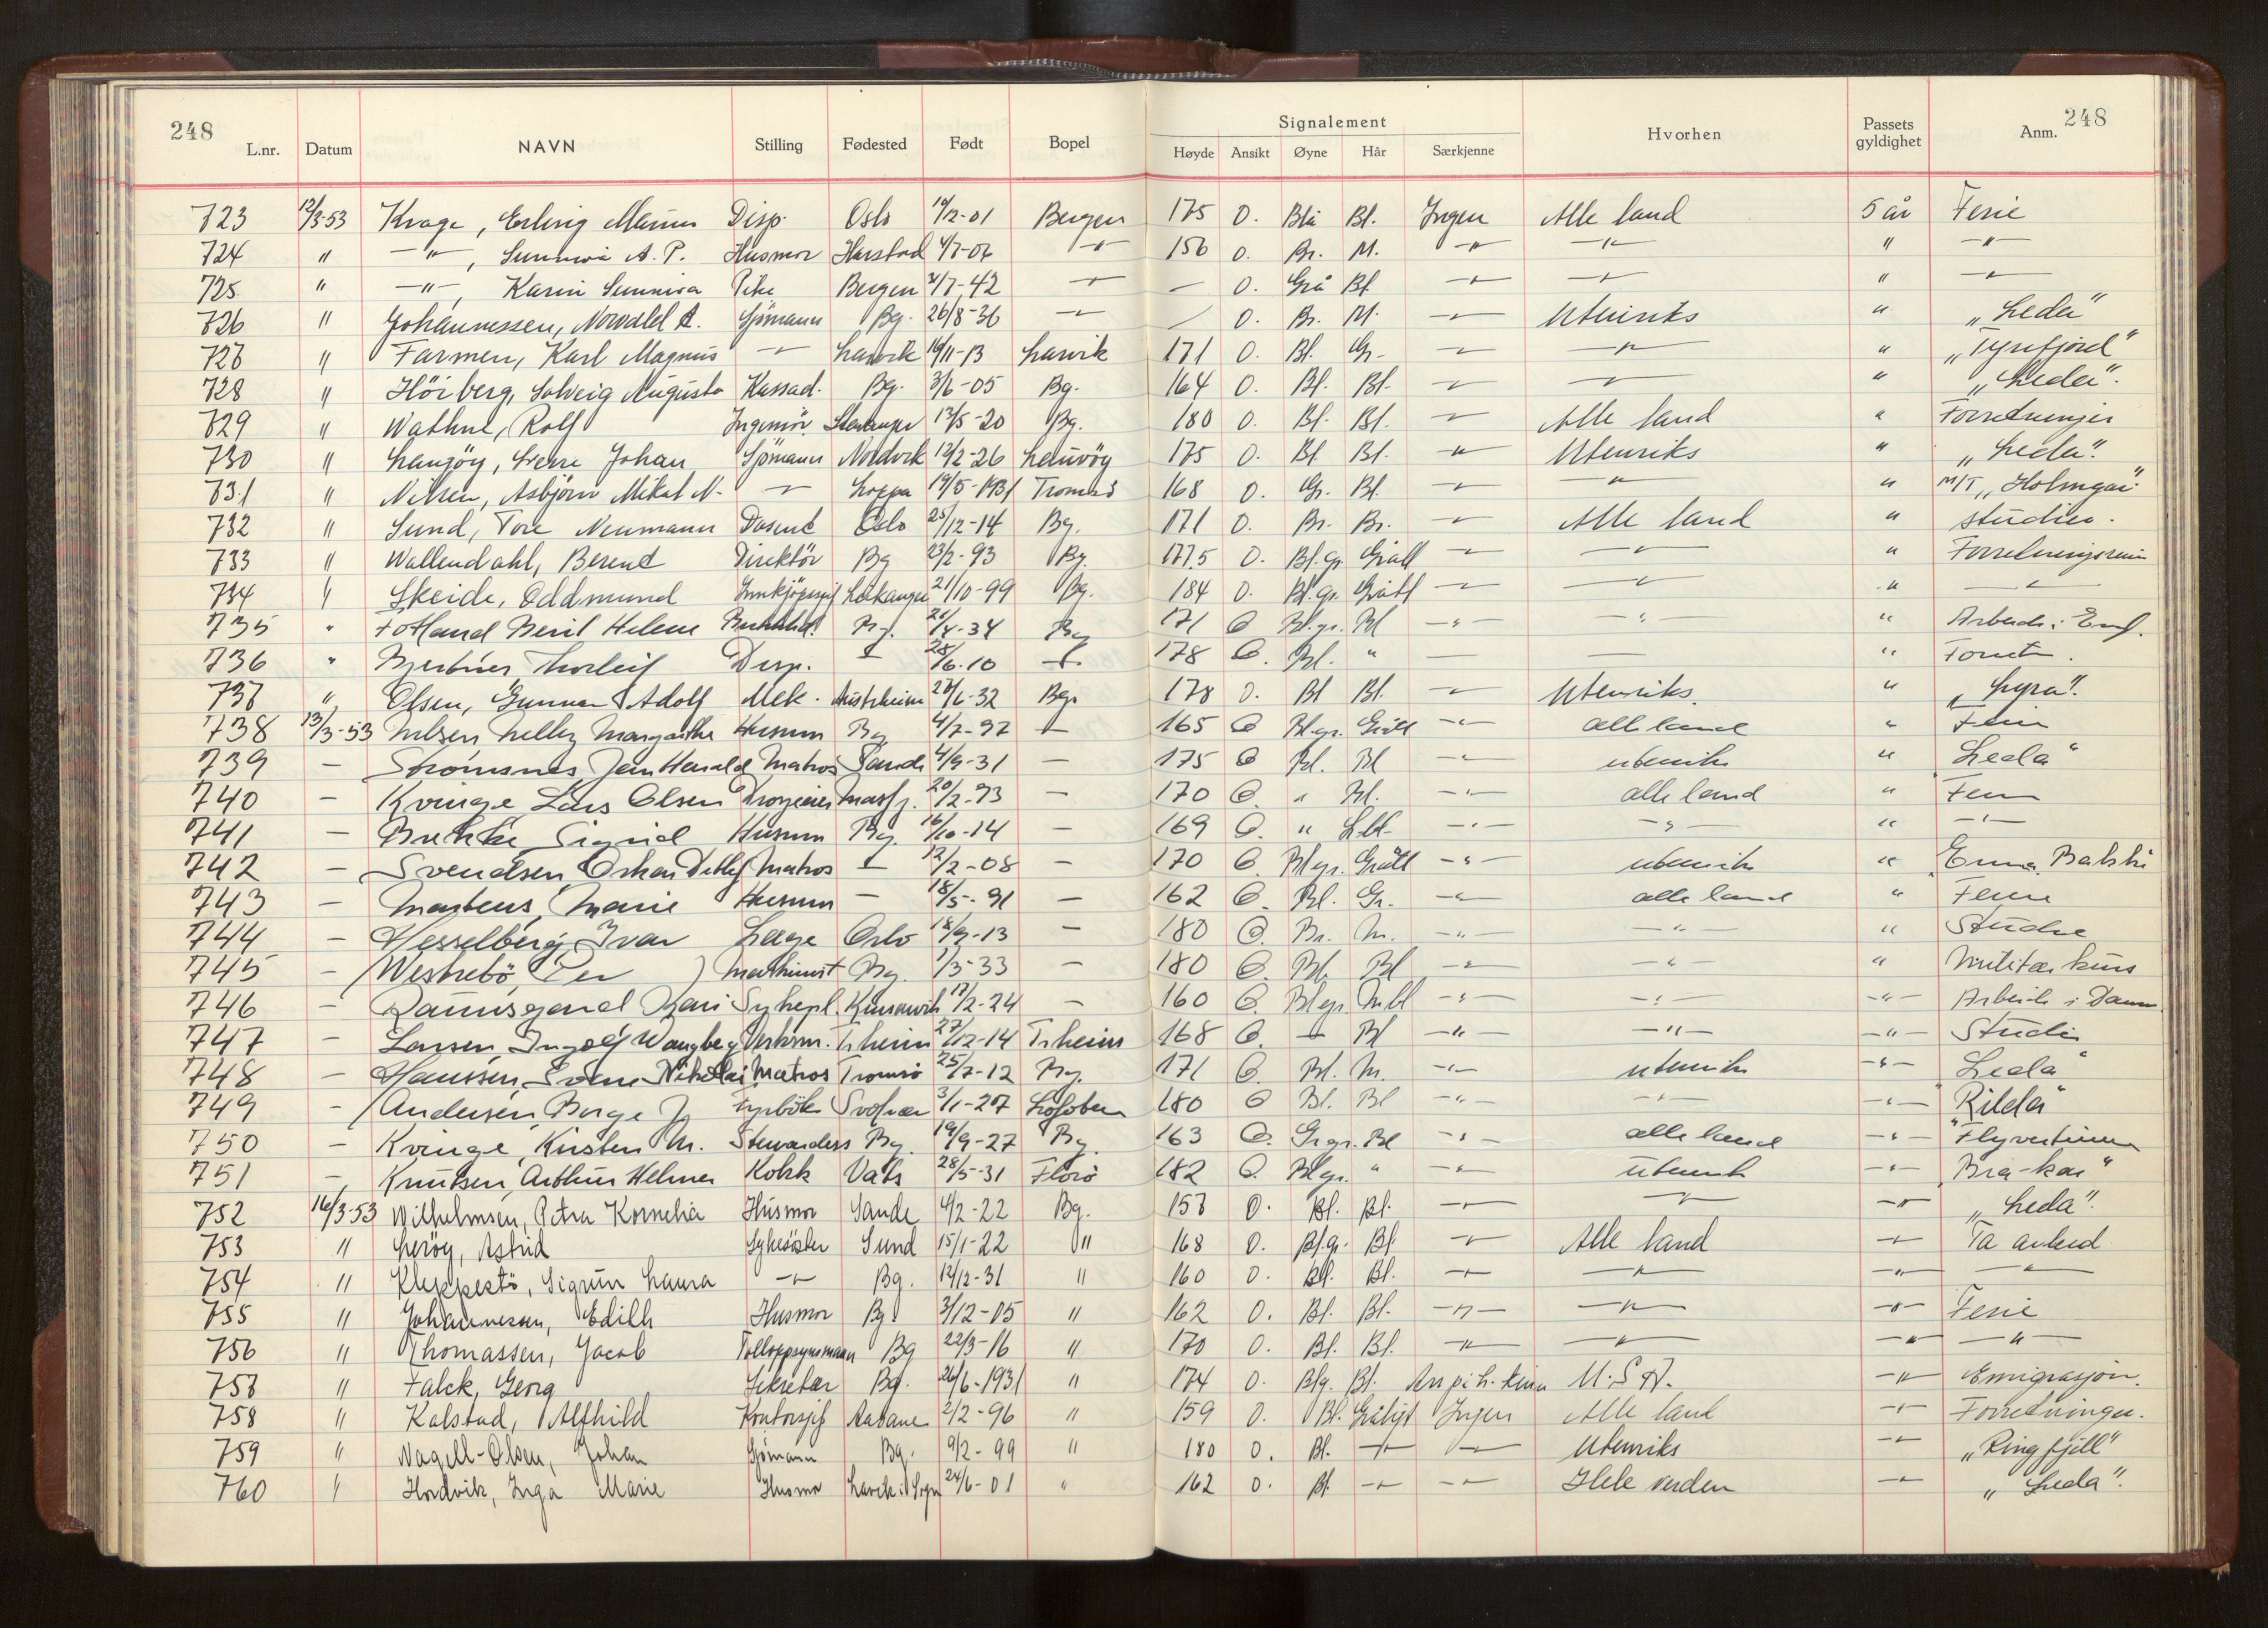 248
248
Signalement
L.nr. Datum NAVN Stilling Fødested Født Bopel Høyde Ansikt Øyne Hår Særkjenne Hvorhen Passets gyldighet Anm.
723 12/3-53 Krage, Erling Disp. Oslo Bergen 175 O. Blå Bl. Ingen Alle land 5 år Ferie
724 " —"—, A. P. Husmor Harstad —"— O. Br. M. —"— —"— " —"—
725 " —"—, Karin Sunniva Pike Bergen —"— — O. Grå Bl. —"— —"— " —"—
726 " Johannessen, A. Sjømann Bg. 26/8-36 —"— O. Br. M. —"— Utenriks " „Leda"
727 " Farmen, Karl Magnus —"— Larvik Larvik 171 O. Bl. Gr. —"— —"— " „Tyrifjord"
728 " Höiberg, Solveig Augusta Kassad. Bg. 3/6-05 Bg. 164 O. Bl. Bl. —"— —"— " „Leda".
729 " Wathne, Rolf Ingeniör Stavanger 13/5-20 Bg. 180 O. Bl. Bl. —"— Alle land " Forretninger
730 " Johan Sjømann 175 O. Bl Bl. —"— Utenriks " „Leda".
731 " Nilsen, Asbjörn Mikal N. —"— Loppa 19/5-1931 Tromsö 168 O. Gr. Bl. —"— —"— " M/T
732 " Sund, Tore Neumann Dosent Oslo 25/12-14 Bg. 171 O. Br. Br. —"— Alle land " studier.
733 " Wallendahl, Berent Direktör Bg 23/2-93 Bg. 177.5 O. Bl.gr. Grått —"— —"— " Forretningsreise
734 " Skeide, Oddmund Innkjöpssjef Leikanger 21/10-99 Bg. 184 O. Bl.gr. Grått —"— —"— " —"—
735 " Fotland Beril Helene Bg. Bg 171 O Bl.gr. Bl —"— —"— " Arbeide i Engl.
736 " Thorleif Disp. 178 O. Bl. " — — " Forretn.
737 " Olsen, Gunnar Adolf Mek. Austrheim Bg. 178 O. Bl Bl. —"— Utenriks. " „Lyra".
738 13/3-53 Nilsen Nelly Margarethe Husmor Bg 165 O Bl.gr. Grått —"— alle land " Ferie
739 — Strömsnes Jan Harald Matros Sande 4/9-31 — 175 O Bl. Bl —"— utenriks " Leda"
740 — Kvinge Lars Olsen 20/2-93 — 170 O. " Bl. —"— alle land " Ferie
741 — Sigrid Husmor Bg. 16/10-14 — 169 O. " —"— —"— " —"—
742 — Svendsen Oskar Detlef Matros 12/2-08 — 170 O. Bl.gr. Grått —"— utenriks " Emma Bakke
743 — Martens, Marie Husmor — 18/5-91 — 162 O. Bl. Gr. —"— alle land " Ferie
744 — Hesselberg, Ivar Læge Oslo 18/9-13 — 180 O. Br. M. —"— —"— " Studie
745 — Westrebö, Per Maskinist Bg. 1/3-33 — 180 O. Bl. Bl —"— —"— " Militærkurs
746 — Kari Sykepl. 17/2-24 — 160 O. Bl.gr. M.bl —"— —"— —"— Arbeide i Danm
747 — Larsen, Ingolf Wangberg Verksm. Tr.heim 27/12-14 Tr.heim 168 O. Bl —"— —"— —"— Studie
748 — Hanssen, Svenn Nikolai Matros Tromsö 25/7-12 Bg. 171 O. Bl. M. —"— utenriks —"— Leda"
749 — Andersen, Börge J. Fyrböter Svolvær 3/1-27 Lofoten 180 O Bl. Bl —"— —"— —"— "Rilda"
750 — Kvinge, Kirsten M. Stewardess Bg. 19/9-27 Bg. 163 O. Gr.gr. Bl —"— alle land —"— Flyvertinne
751 — Knutsen, Arthur Helmer Kokk Vats 28/5-31 Florö 182 O. Bl.gr. " —"— utenriks —"— "Bra-Kar"
752 16/3-53 Wilhelmsen, Petra Kornelia Husmor Sande 4/2-22 Bg. 157 O. Bl. Bl. —"— —"— —"— „Leda".
753 " Leröy, Astrid Sykesöster Sund 15/1-22 " 168 O. Bl.gr. Bl —"— Alle land —"— Ta arbeid
754 " Kleppestö, Sigrun Laura —"— Bg. 14/12-31 " 160 O. Bl. Bl. —"— —"— —"— —"—
755 " Johannessen, Edith Husmor Bg 3/12-05 " 162 O. Bl. Bl. —"— —"— —"— Ferie
756 " Thomassen, Jacob Tolloppsynsmann Bg 22/3-16 " 170 O. Bl. Bl. —"— —"— —"— —"—
757 " Falck, Georg Sekretær Bg. 26/6-1931 " 174 O. Blg. Bl. Arr på h. kinn U.S.A. —"— Emigrasjon.
758 " Kalstad, Alfhild Kontorsjef 2/2-96 " 159 O. Bl. Gråligt Ingen Alle land —"— Forretninger.
759 " Nagell-Olsen, Johan Sjømann Bg. 9/2-99 " 180 O. Bl. —"— —"— Utenriks —"— „Ringfjell"
760 " Hordvik, Inga Marie Husmor Lavik i Sogn 24/6-01 " 162 O. Bl. —"— —"— Hele verden —"— „Leda".